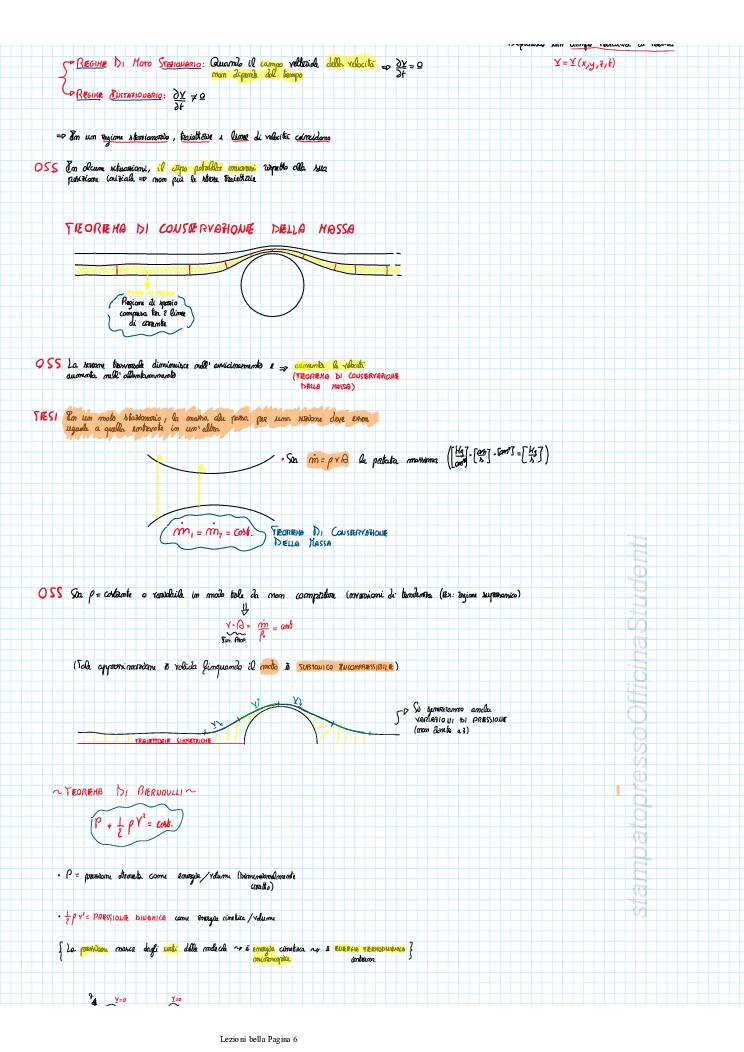 V = V(x,y,z,t)
REGIME DI MOTO STAZIONARIO: Quando il campo vettoriale della velocità ⇒ ∂V/∂t = 0
non dipende dal tempo
REGIME INSTAZIONARIO: ∂V/∂t ≠ 0
⇒ In un regime stazionario, traiettorie e linee di velocità coincidono
OSS In alcune situazioni, il corpo potrebbe muoversi rispetto alla sua
posizione iniziale ⇒ non più la stessa traiettoria
TEOREMA DI CONSERVAZIONE DELLA MASSA
Regione di spazio
compresa tra 2 linee
di corrente
OSS La sezione trasversale diminuisce nell'avvicinamento e ⇒ aumenta la velocità
aumenta nell'allontanamento
(TEOREMA DI CONSERVAZIONE
DELLA MASSA)
TESI In un moto stazionario, la massa che passa per una sezione deve essere
uguale a quella entrante in un'altra
• Sia ṁ = ρvA la portata massima
ṁ₁ = ṁ₂ = cost.
TEOREMA DI CONSERVAZIONE
DELLA MASSA
OSS Sia ρ = costante o variabile in modo tale da non comportare inversioni di tendenza (Es: regime supersonico)
⇓
v · A = ṁ/ρ = cost
(Tale approssimazione è valida finquando il moto è SUBSONICO INCOMPRESSIBILE)
Si genereranno anche
VARIAZIONI DI PRESSIONE
TRAIETTORIE SIMMETRICHE
~ TEOREMA DI BERNOULLI ~
P + 1/2 ρV² = cost.
• P = pressione statica come energia/volume (dimensionalmente
esatto)
• 1/2 ρv² = PRESSIONE DINAMICA come energia cinetica/volume
{ La pressione nasce dagli urti delle molecole ~> è energia cinetica ~> è ENERGIA TERMODINAMICA }
microscopica
interna
V=0
stampatopressoOfficinaStudenti
Lezioni bella Pagina 6